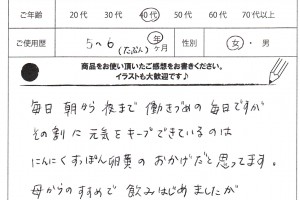 ご年齢 20代 30代 40代 50代 60代 70代以上
ご使用歴 5〜6 (たぶん) 年 ヶ月 性別 女・男
商品をお使い頂いたご感想をお書きください。
イラストも大歓迎です♪
毎日 朝から 夜まで 働きづめの 毎日ですが
その割に 元気を キープできているのは
にんにくすっぽん卵黄の おかげだと 思ってます。
母からのすすめで 飲みはじめましたが